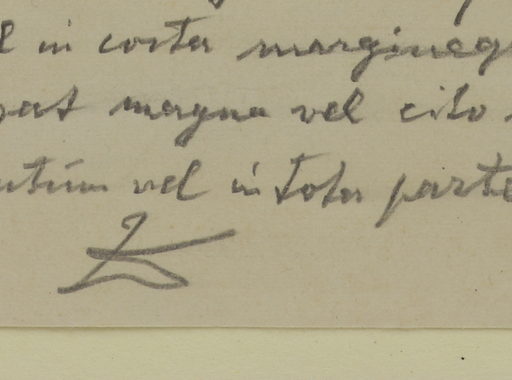 in costa margineq
magna vel cito
vel in tota parte